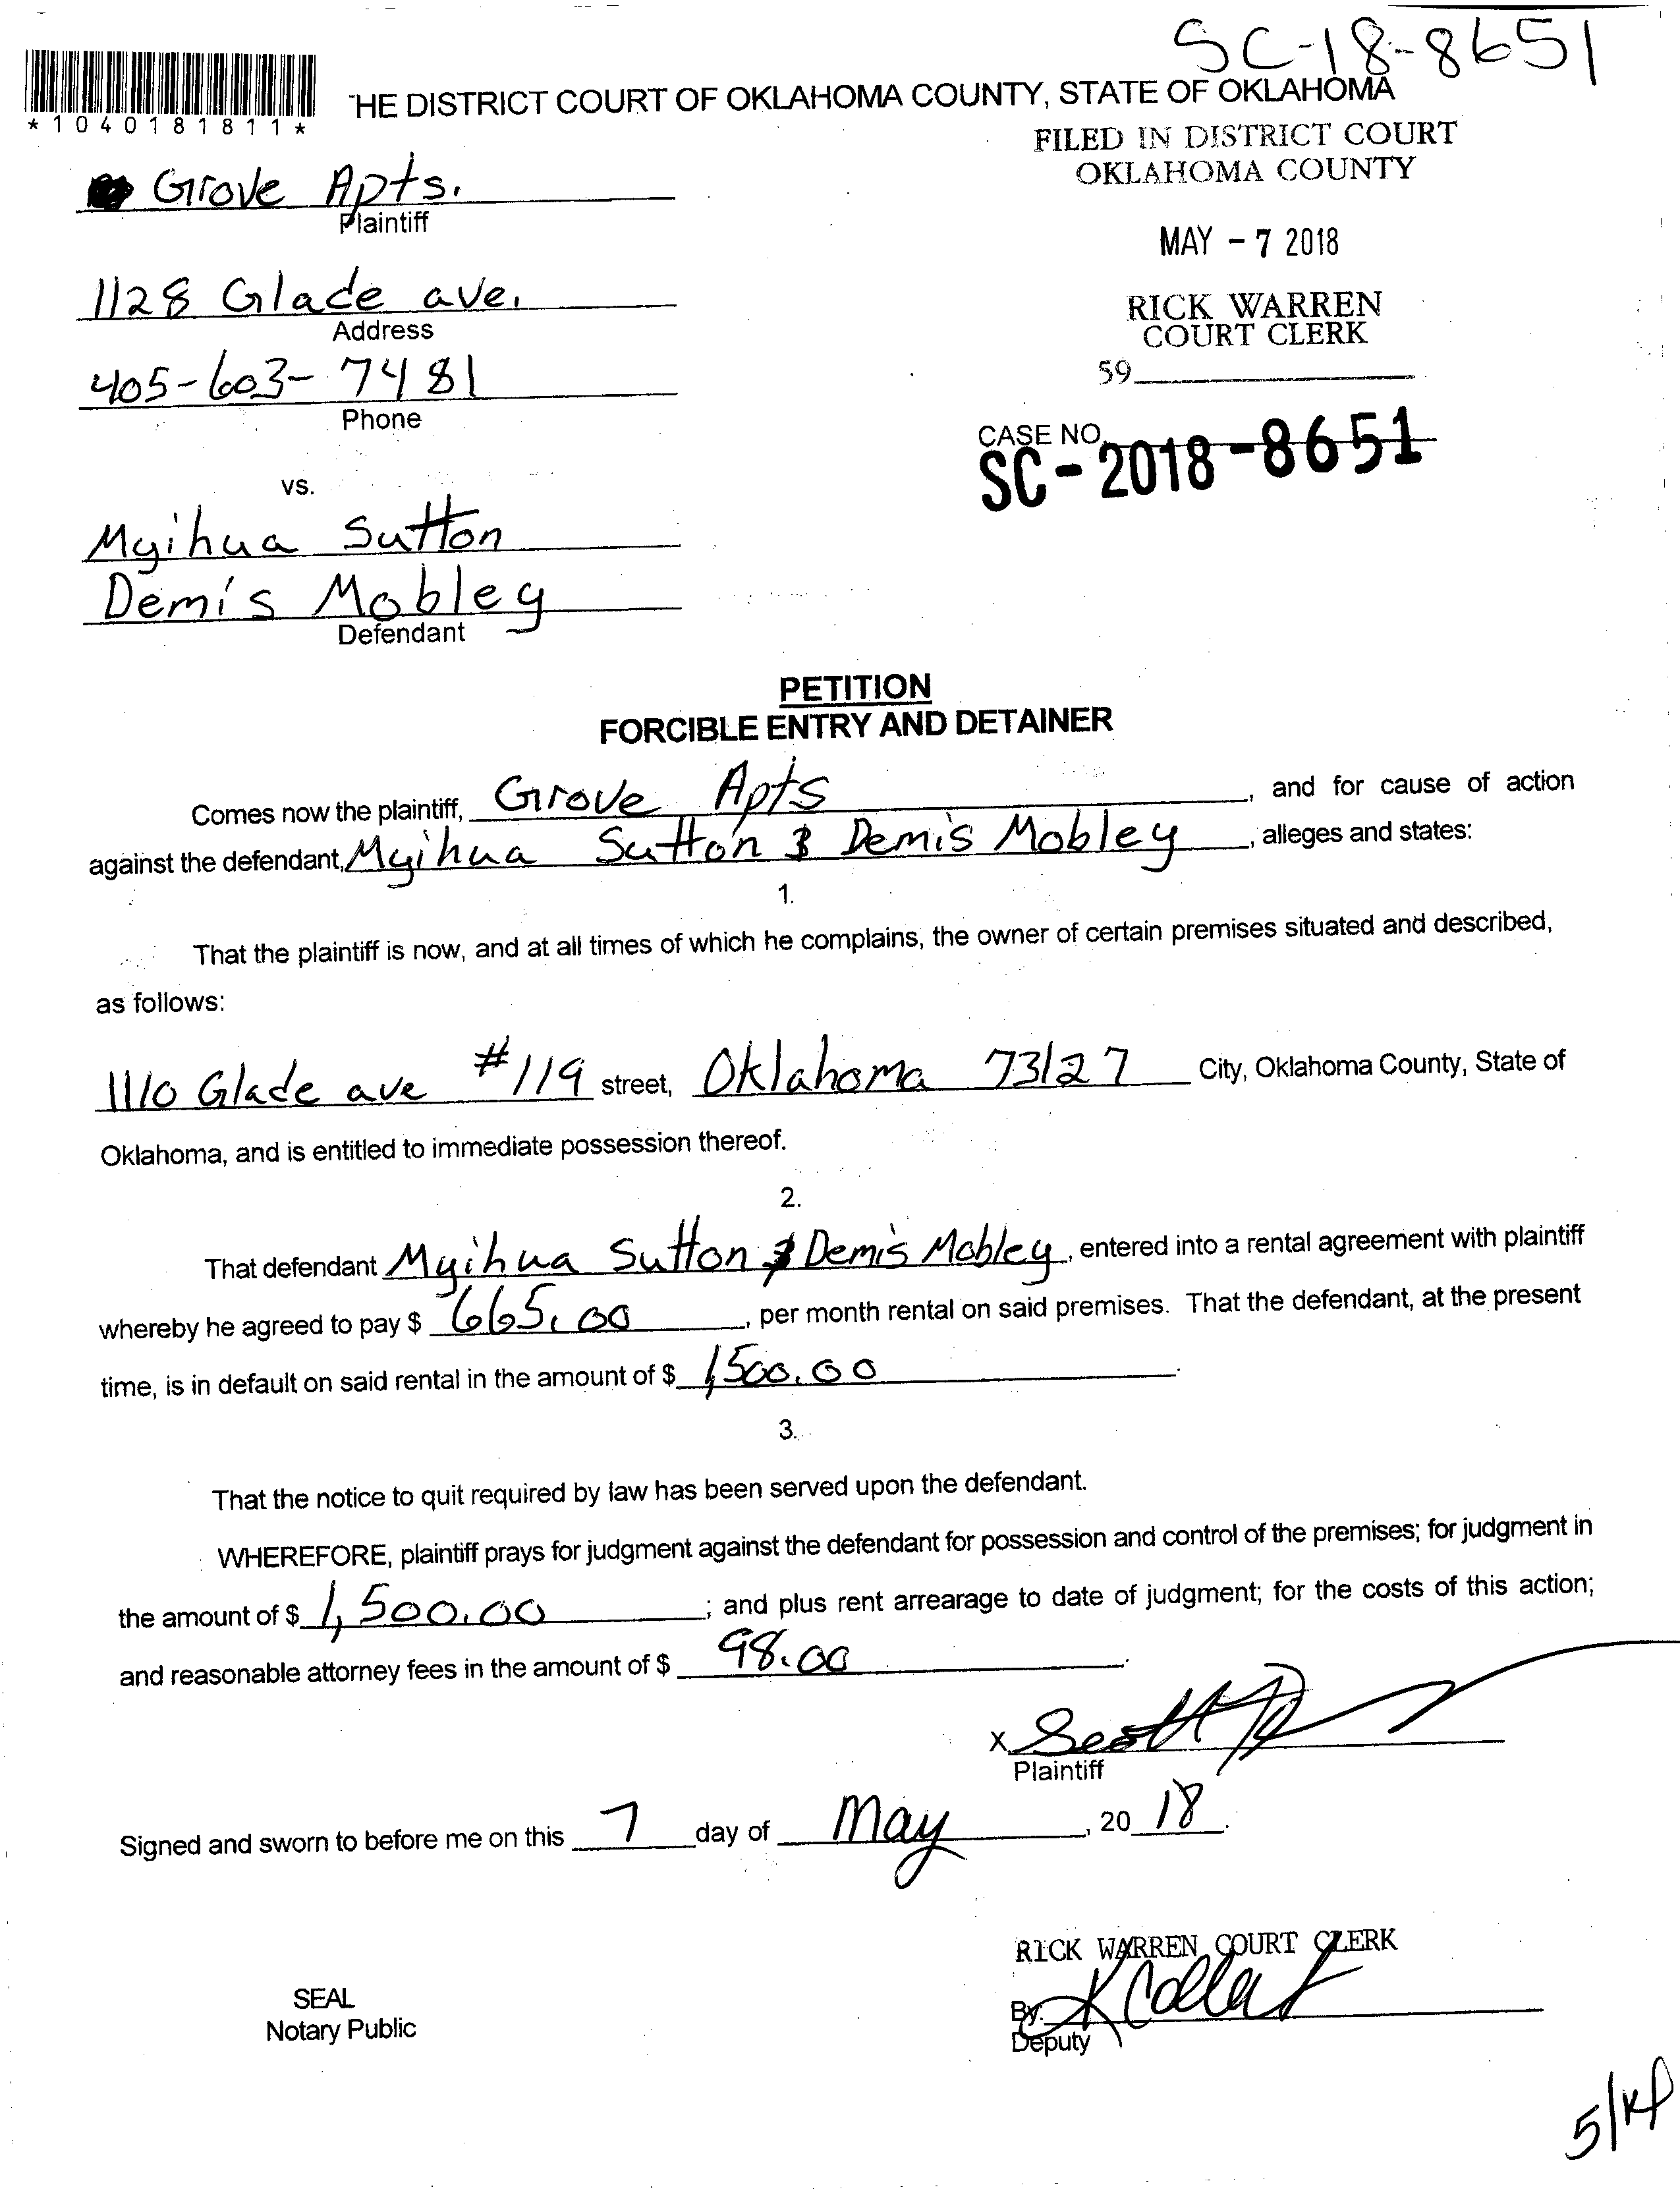 SC-18-8651
*1040181811*
THE DISTRICT COURT OF OKLAHOMA COUNTY, STATE OF OKLAHOMA
FILED IN DISTRICT COURT
OKLAHOMA COUNTY
Grove Apts.
Plaintiff
MAY - 7 2018
1128 Glade ave.
Address
RICK WARREN
COURT CLERK
405-603-7481
Phone
59
CASE NO.
SC-2018-8651
vs.
Myihua Sutton
Demis Mobley
Defendant
PETITION
FORCIBLE ENTRY AND DETAINER
Comes now the plaintiff, Grove Apts, and for cause of action
against the defendant, Myihua Sutton & Demis Mobley, alleges and states:
1.
That the plaintiff is now, and at all times of which he complains, the owner of certain premises situated and described,
as follows:
1110 Glade ave #119 street, Oklahoma 73127 City, Oklahoma County, State of
Oklahoma, and is entitled to immediate possession thereof.
2.
That defendant Myihua Sutton & Demis Mobley, entered into a rental agreement with plaintiff
whereby he agreed to pay $ 665.00, per month rental on said premises. That the defendant, at the present
time, is in default on said rental in the amount of $ 1,500.00.
3.
That the notice to quit required by law has been served upon the defendant.
WHEREFORE, plaintiff prays for judgment against the defendant for possession and control of the premises; for judgment in
the amount of $ 1,500.00; and plus rent arrearage to date of judgment; for the costs of this action;
and reasonable attorney fees in the amount of $ 98.00.
X Scott
Plaintiff
Signed and sworn to before me on this 7 day of May, 20 18.
RICK WARREN COURT CLERK
SEAL
Notary Public
By:
Deputy